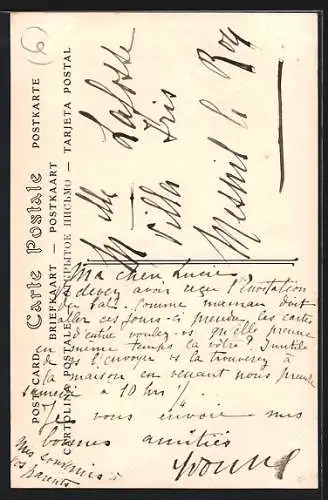 (6)
Carte Postale
POST-CARD — BRIEFKAART — POSTKAART — POSTKARTE
CARTOLINA POSTALE — ОТКРЫТОЕ ПИСЬМО — TARJETA POSTAL
Mlle Lafosse
Villa Iris
Mesnil le Roy
Ma chère Lucie
Vs devez avoir reçu l'invitation
du bal. Comme maman doit
aller ces jours-ci prendre les cartes
d'entrée voulez-vs qu'elle prenne
en même temps la vôtre? Inutile
de vs l'envoyer vs la trouverez à
la maison en venant nous prendre
samedi à 10 hrs!
Je vous envoie mes
bonnes amitiés
Yvonne
Mes souvenirs à
vos parents